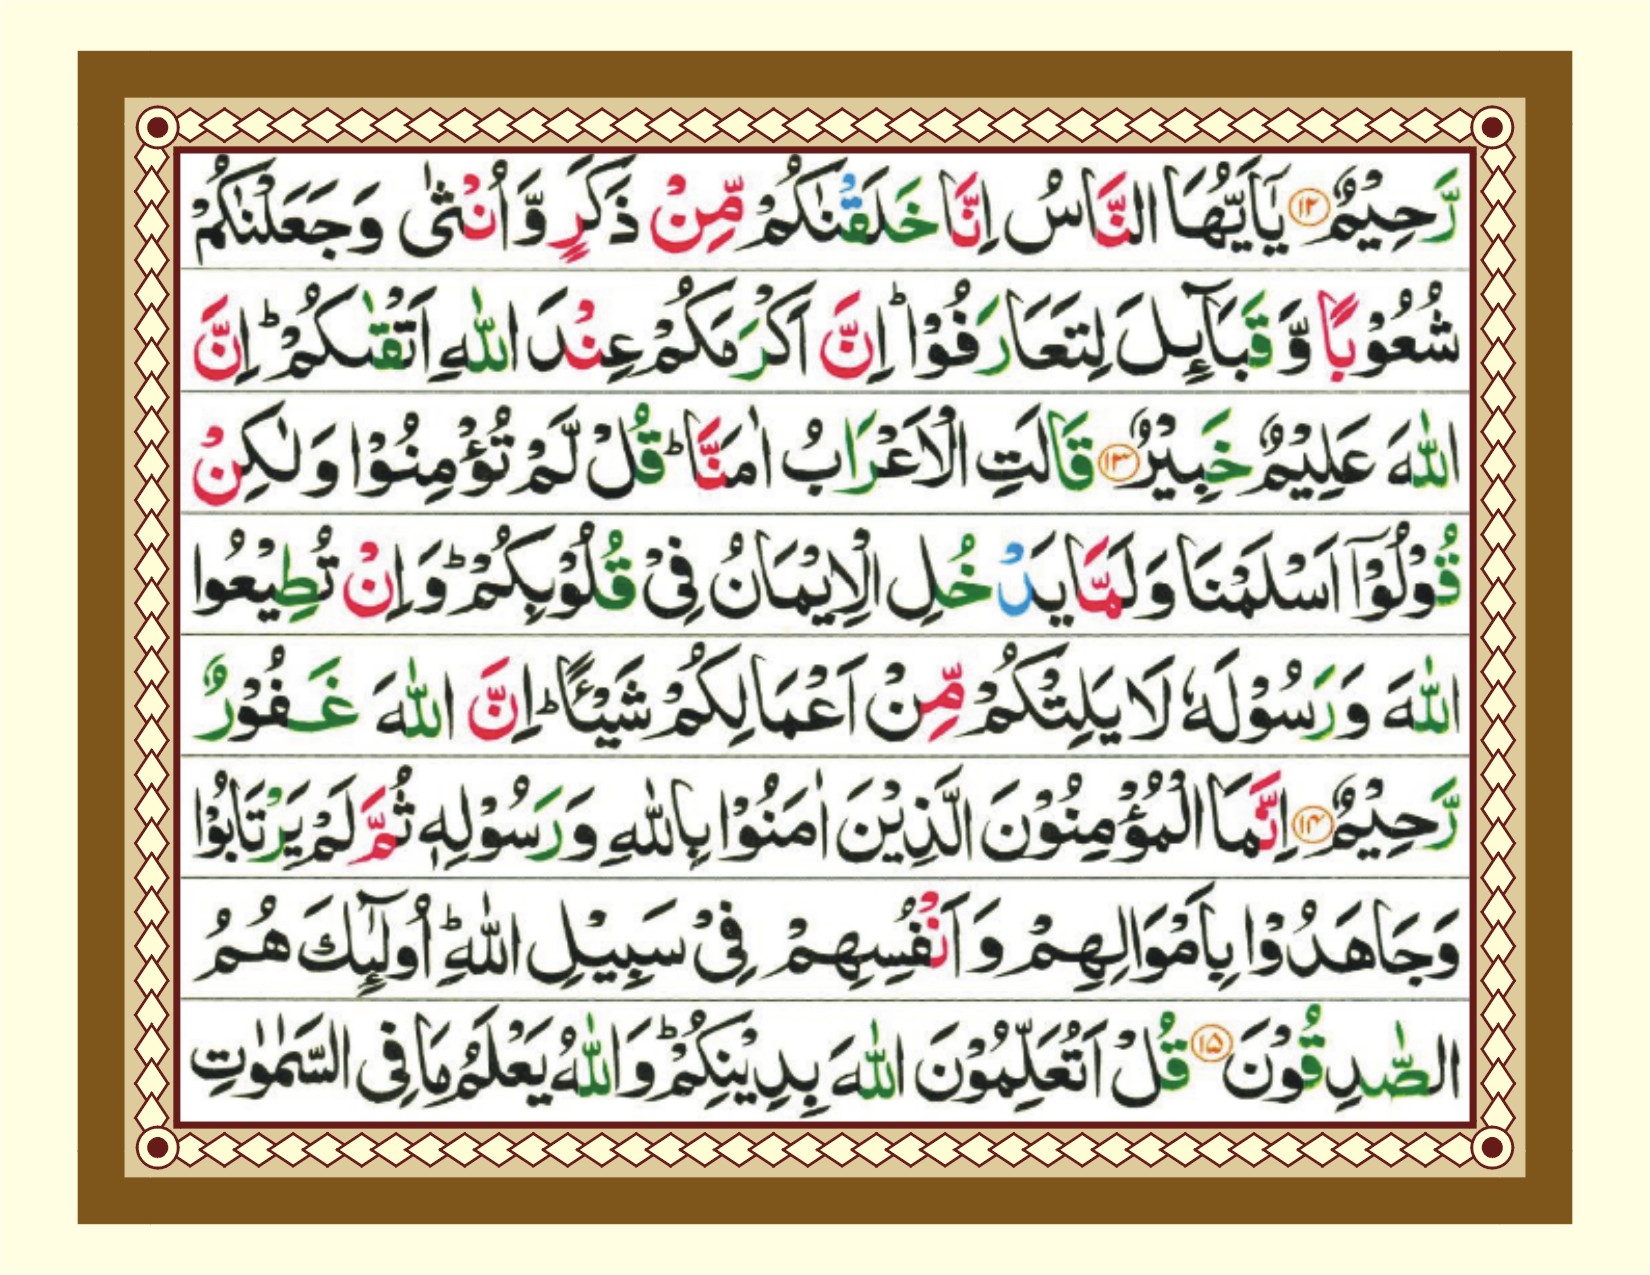 رَّحِيْمٌ ۝۱۲ يٰۤاَيُّهَا النَّاسُ اِنَّا خَلَقْنٰكُمْ مِّنْ ذَكَرٍ وَّ اُنْثٰى وَجَعَلْنٰكُمْ
شُعُوْبًا وَّ قَبَآئِلَ لِتَعَارَفُوْا ؕ اِنَّ اَكْرَمَكُمْ عِنْدَ اللّٰهِ اَتْقٰىكُمْ ؕ اِنَّ
اللّٰهَ عَلِيْمٌ خَبِيْرٌ ۝۱۳ قَالَتِ الْاَعْرَابُ اٰمَنَّا ؕ قُلْ لَّمْ تُؤْمِنُوْا وَ لٰكِنْ
قُوْلُوْۤا اَسْلَمْنَا وَ لَمَّا يَدْخُلِ الْاِيْمَانُ فِيْ قُلُوْبِكُمْ ؕ وَ اِنْ تُطِيْعُوا
اللّٰهَ وَ رَسُوْلَهٗ لَا يَلِتْكُمْ مِّنْ اَعْمَالِكُمْ شَيْـًٔا ؕ اِنَّ اللّٰهَ غَفُوْرٌ
رَّحِيْمٌ ۝۱۴ اِنَّمَا الْمُؤْمِنُوْنَ الَّذِيْنَ اٰمَنُوْا بِاللّٰهِ وَ رَسُوْلِهٖ ثُمَّ لَمْ يَرْتَابُوْا
وَ جَاهَدُوْا بِاَمْوَالِهِمْ وَ اَنْفُسِهِمْ فِيْ سَبِيْلِ اللّٰهِ ؕ اُولٰٓئِكَ هُمُ
الصّٰدِقُوْنَ ۝۱۵ قُلْ اَتُعَلِّمُوْنَ اللّٰهَ بِدِيْنِكُمْ ؕ وَ اللّٰهُ يَعْلَمُ مَا فِي السَّمٰوٰتِ